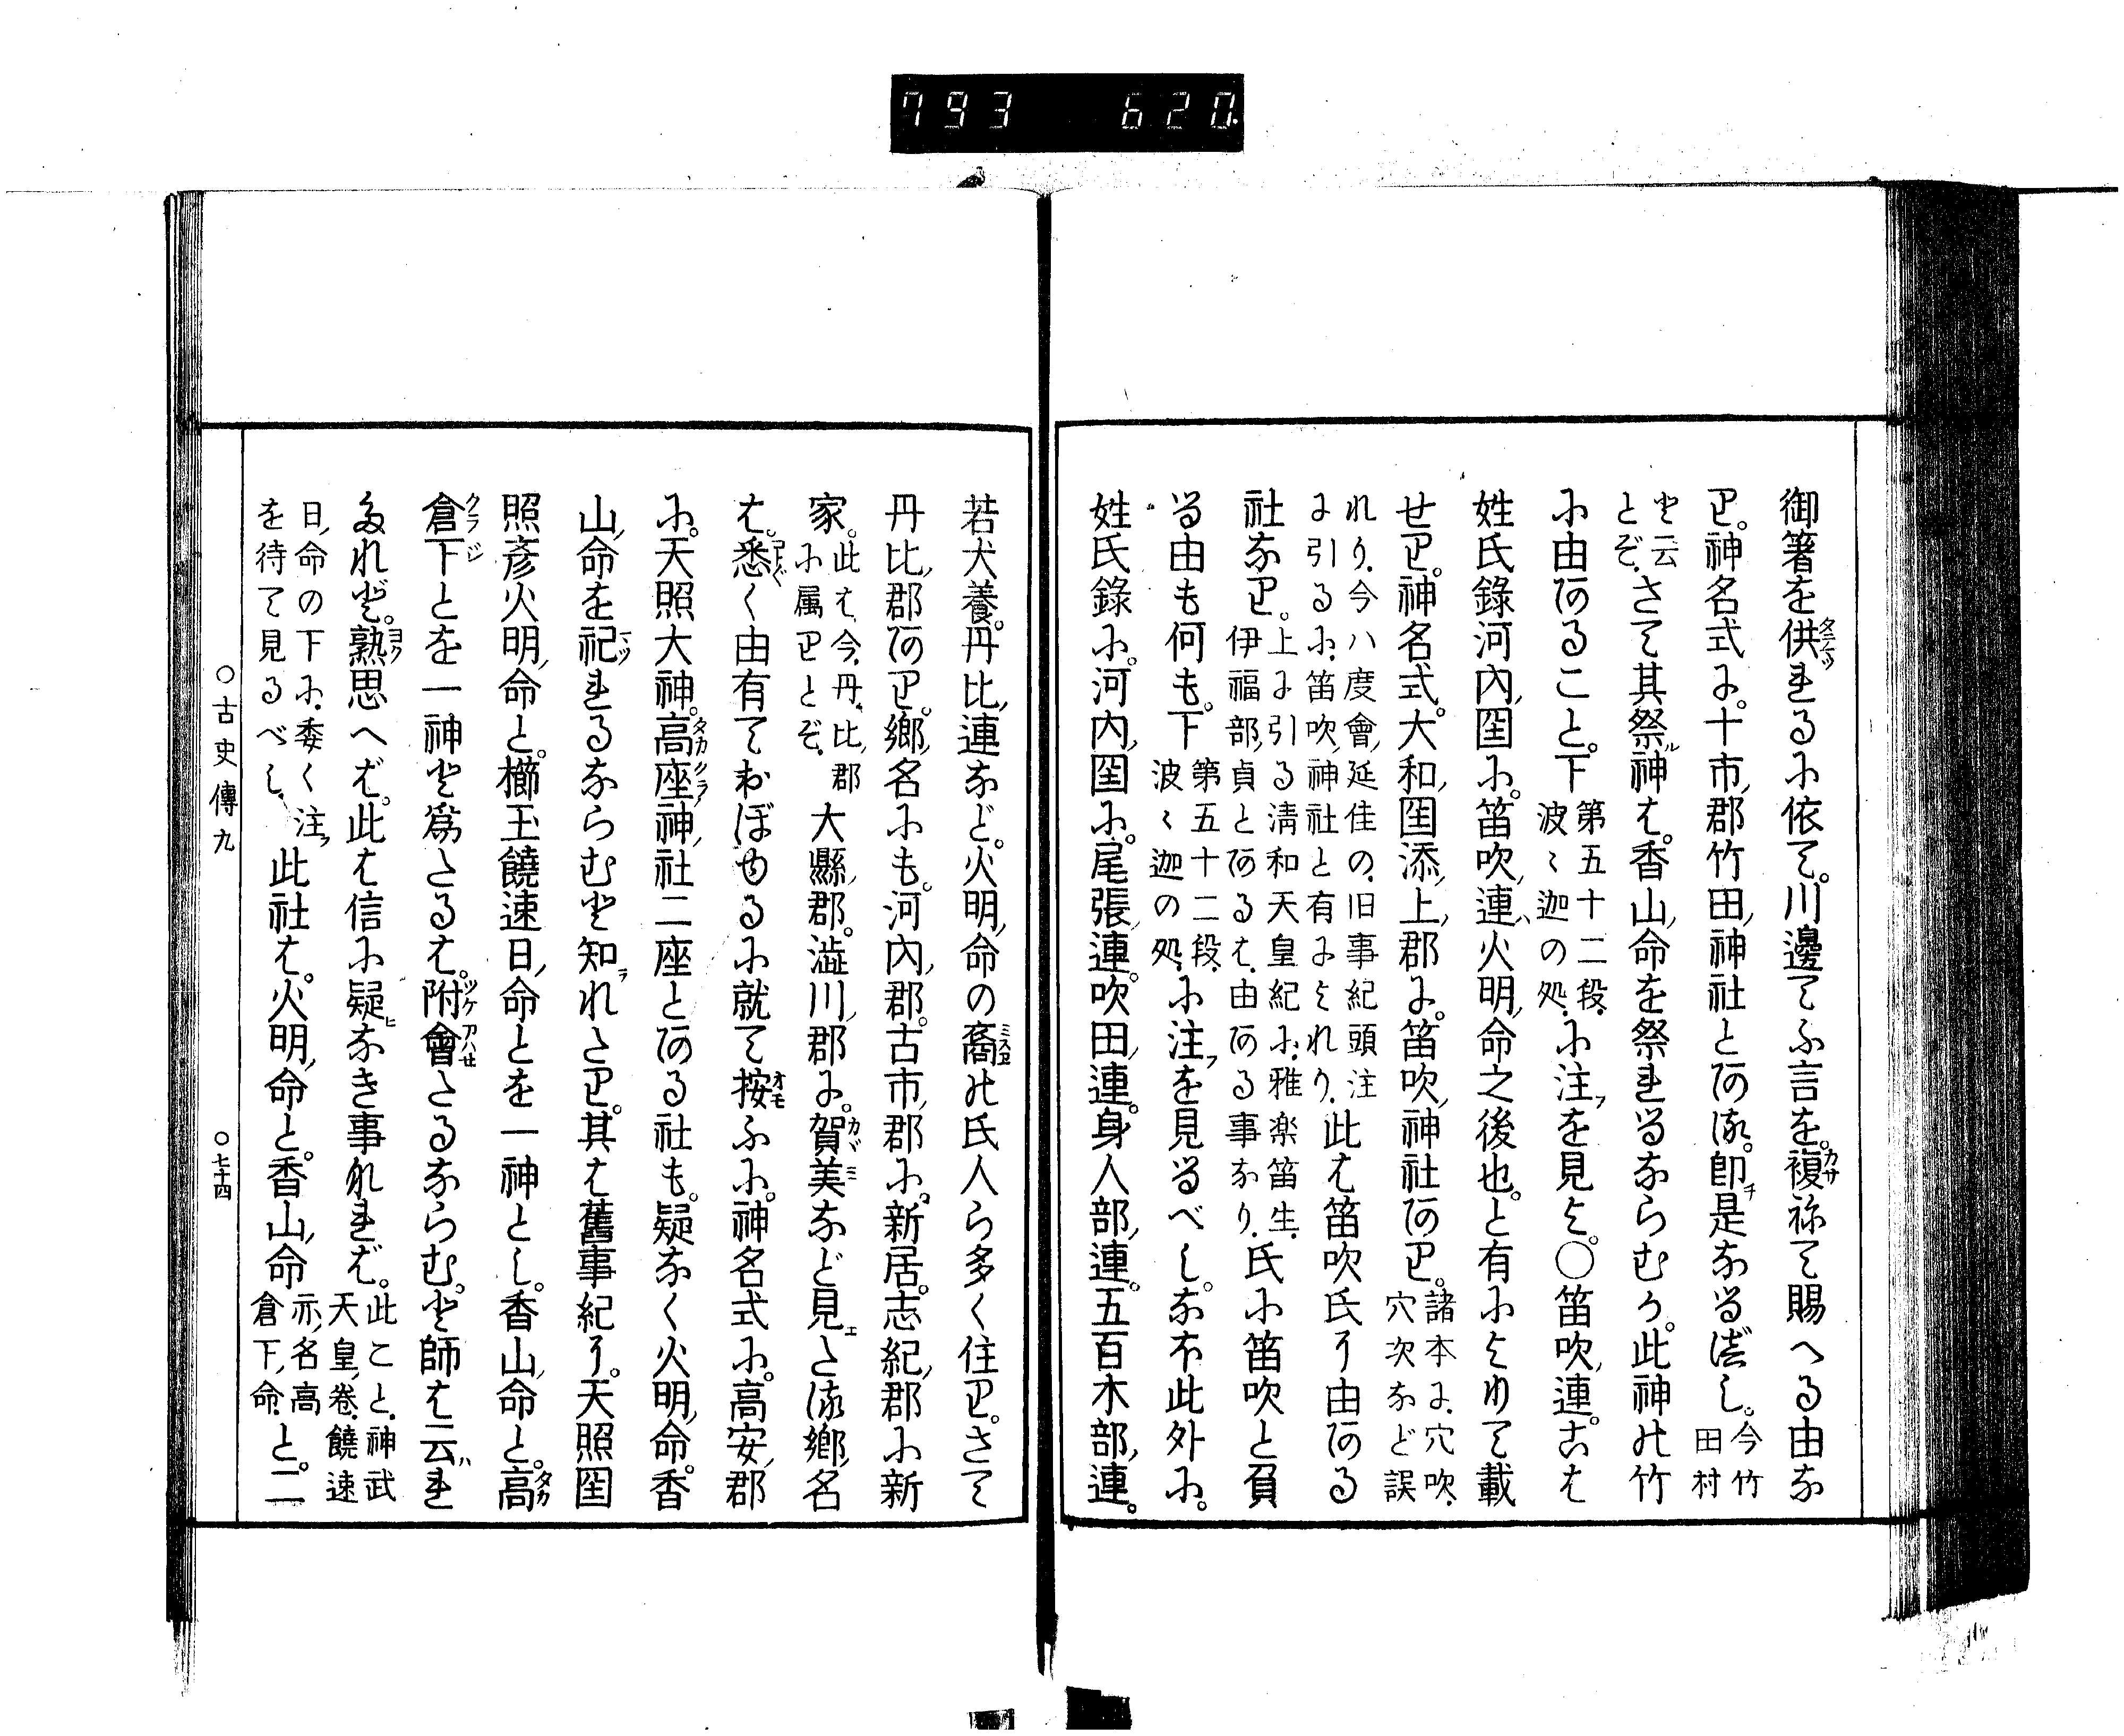 793 620
御箸を供れるに依て。川邊てふ言を。複祢て賜へる由な
り。神名式に。十市郡竹田神社とある。即是なるべし。今竹田村
と云とぞ。さて其祭神は。香山命を祭れるならむか。此神の竹
に由あること。下第五十二段、波〻迦の処、に注を見よ。〇笛吹連。こは
姓氏錄河內国に。笛吹連、火明命之後也。と有によりて載
せり。神名式。大和国添上郡に。笛吹神社あり。諸本に、穴吹、穴次など誤
れり、今ハ度會延佳の、旧事紀頭注に引るに、笛吹神社と有によれり、此は笛吹氏に由ある
社なり。上に引る淸和天皇紀に、雅楽笛生、伊福部貞とあるは、由ある事なり、氏に笛吹と負
る由も何も。下第五十二段、波〻迦の処、に注を見るべし。なほ此外に。
姓氏錄に。河内国に。尾張連。吹田連。身人部連。五百木部連。
若犬養。丹比連など。火明命の裔の氏人ら多く住り。さて
丹比郡あり。鄉名にも。河內郡。古市郡に、新居。志紀郡に新
家。此は、今、丹比郡に属りとぞ、大縣郡。澁川郡に。賀美など見えたる鄉名
は。悉く由有ておぼゆるに就て按ふに。神名式に。高安郡
に。天照大神。高座神社二座とある社も。疑なく火明命。香
山命を祀れるならむと知れたり。其は舊事紀に。天照国
照彦火明命と。櫛玉饒速日命とを一神とし。香山命と。高
倉下とを一神と爲たるは。附會たるならむ。と師は云れ
たれど。熟思へば。此は信に疑なき事なれば。此こと、神武天皇卷、饒速
日命の下に、委く注を待て見るべし、此社は。火明命と。香山命亦名高倉下命、と。二
〇古史傳九 〇七十四